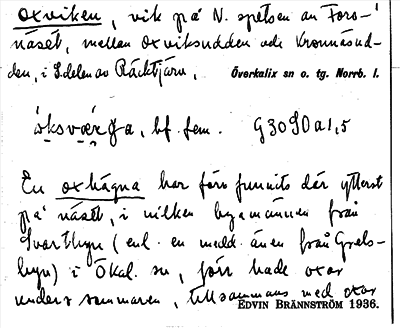 Oxviken, vik på N. spetsen av Foro-
näset, mellan Oxviksudden och Kronnäsud-
den, i S. delen av Räcktjärv. Överkalix sn o. tg. Norrb. l.
bf. fem. G3090a1,5
En oxhägna har förr funnits där ytterst
på näset, i vilken byamännen från
Svartbyn (enl. en medd. även från Grels-
byn) i Ökal. sn, förr hade oxar
under sommaren, tillsammans med oxar
EDVIN BRÄNNSTRÖM 1936.